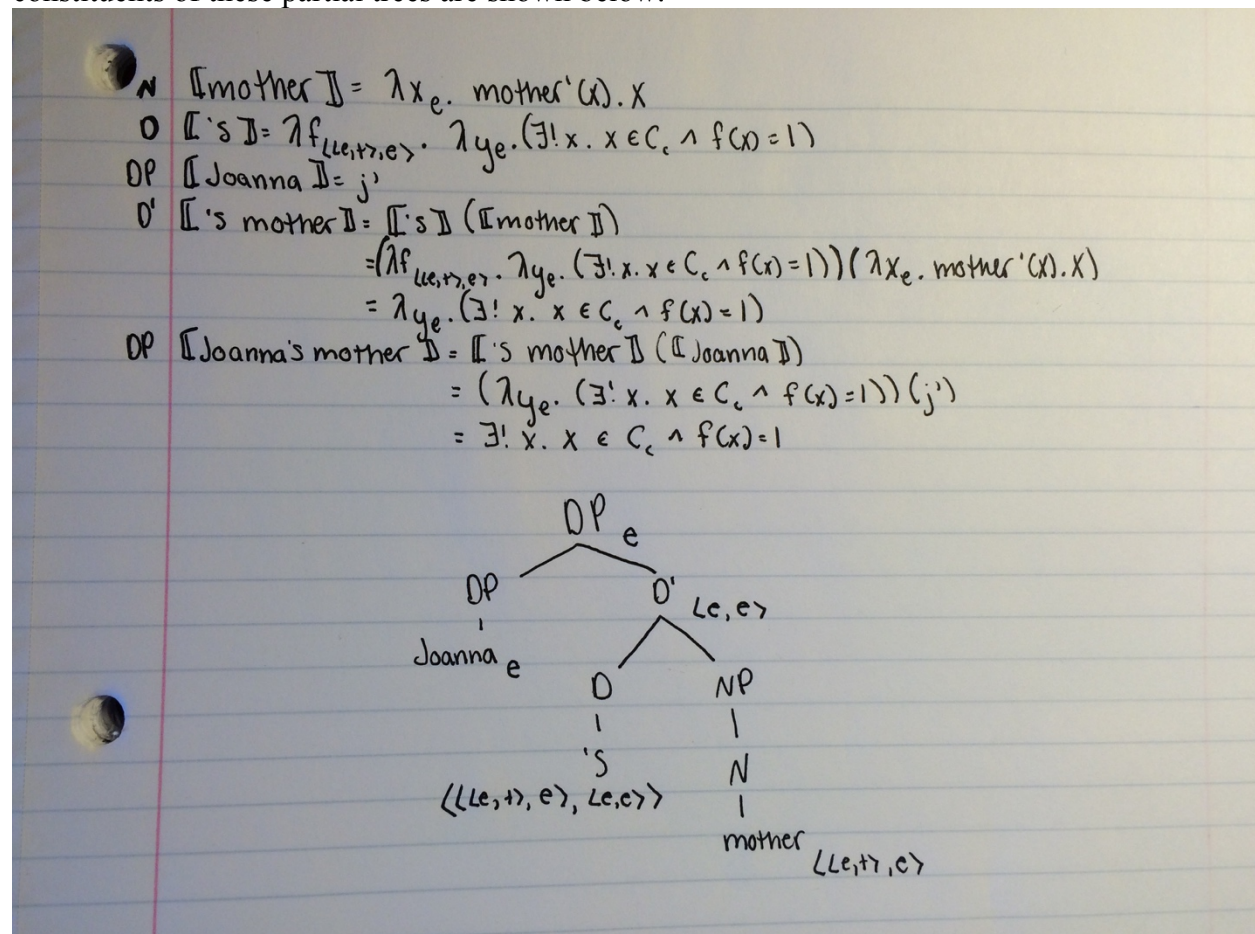 constituents of these partial trees are shown below.
N ⟦mother⟧ = λx_e. mother'(x).x
D ⟦'s⟧ = λf_⟨⟨e,t⟩,e⟩. λy_e.(∃!x. x ∈ C_c ∧ f(x) = 1)
DP ⟦Joanna⟧ = j'
D' ⟦'s mother⟧ = ⟦'s⟧ (⟦mother⟧)
=(λf_⟨⟨e,t⟩,e⟩. λy_e. (∃!x. x ∈ C_c ∧ f(x) = 1))(λx_e. mother'(x).x)
= λy_e.(∃! x. x ∈ C_c ∧ f(x) = 1)
DP ⟦Joanna's mother⟧ = ⟦'s mother⟧ (⟦Joanna⟧)
= (λy_e. (∃! x. x ∈ C_c ∧ f(x) = 1))(j')
= ∃! x. x ∈ C_c ∧ f(x) = 1
DP e
DP D' ⟨e,e⟩
Joanna e
D NP
's N
⟨⟨⟨e,t⟩,e⟩,⟨e,e⟩⟩
mother ⟨⟨e,t⟩,e⟩